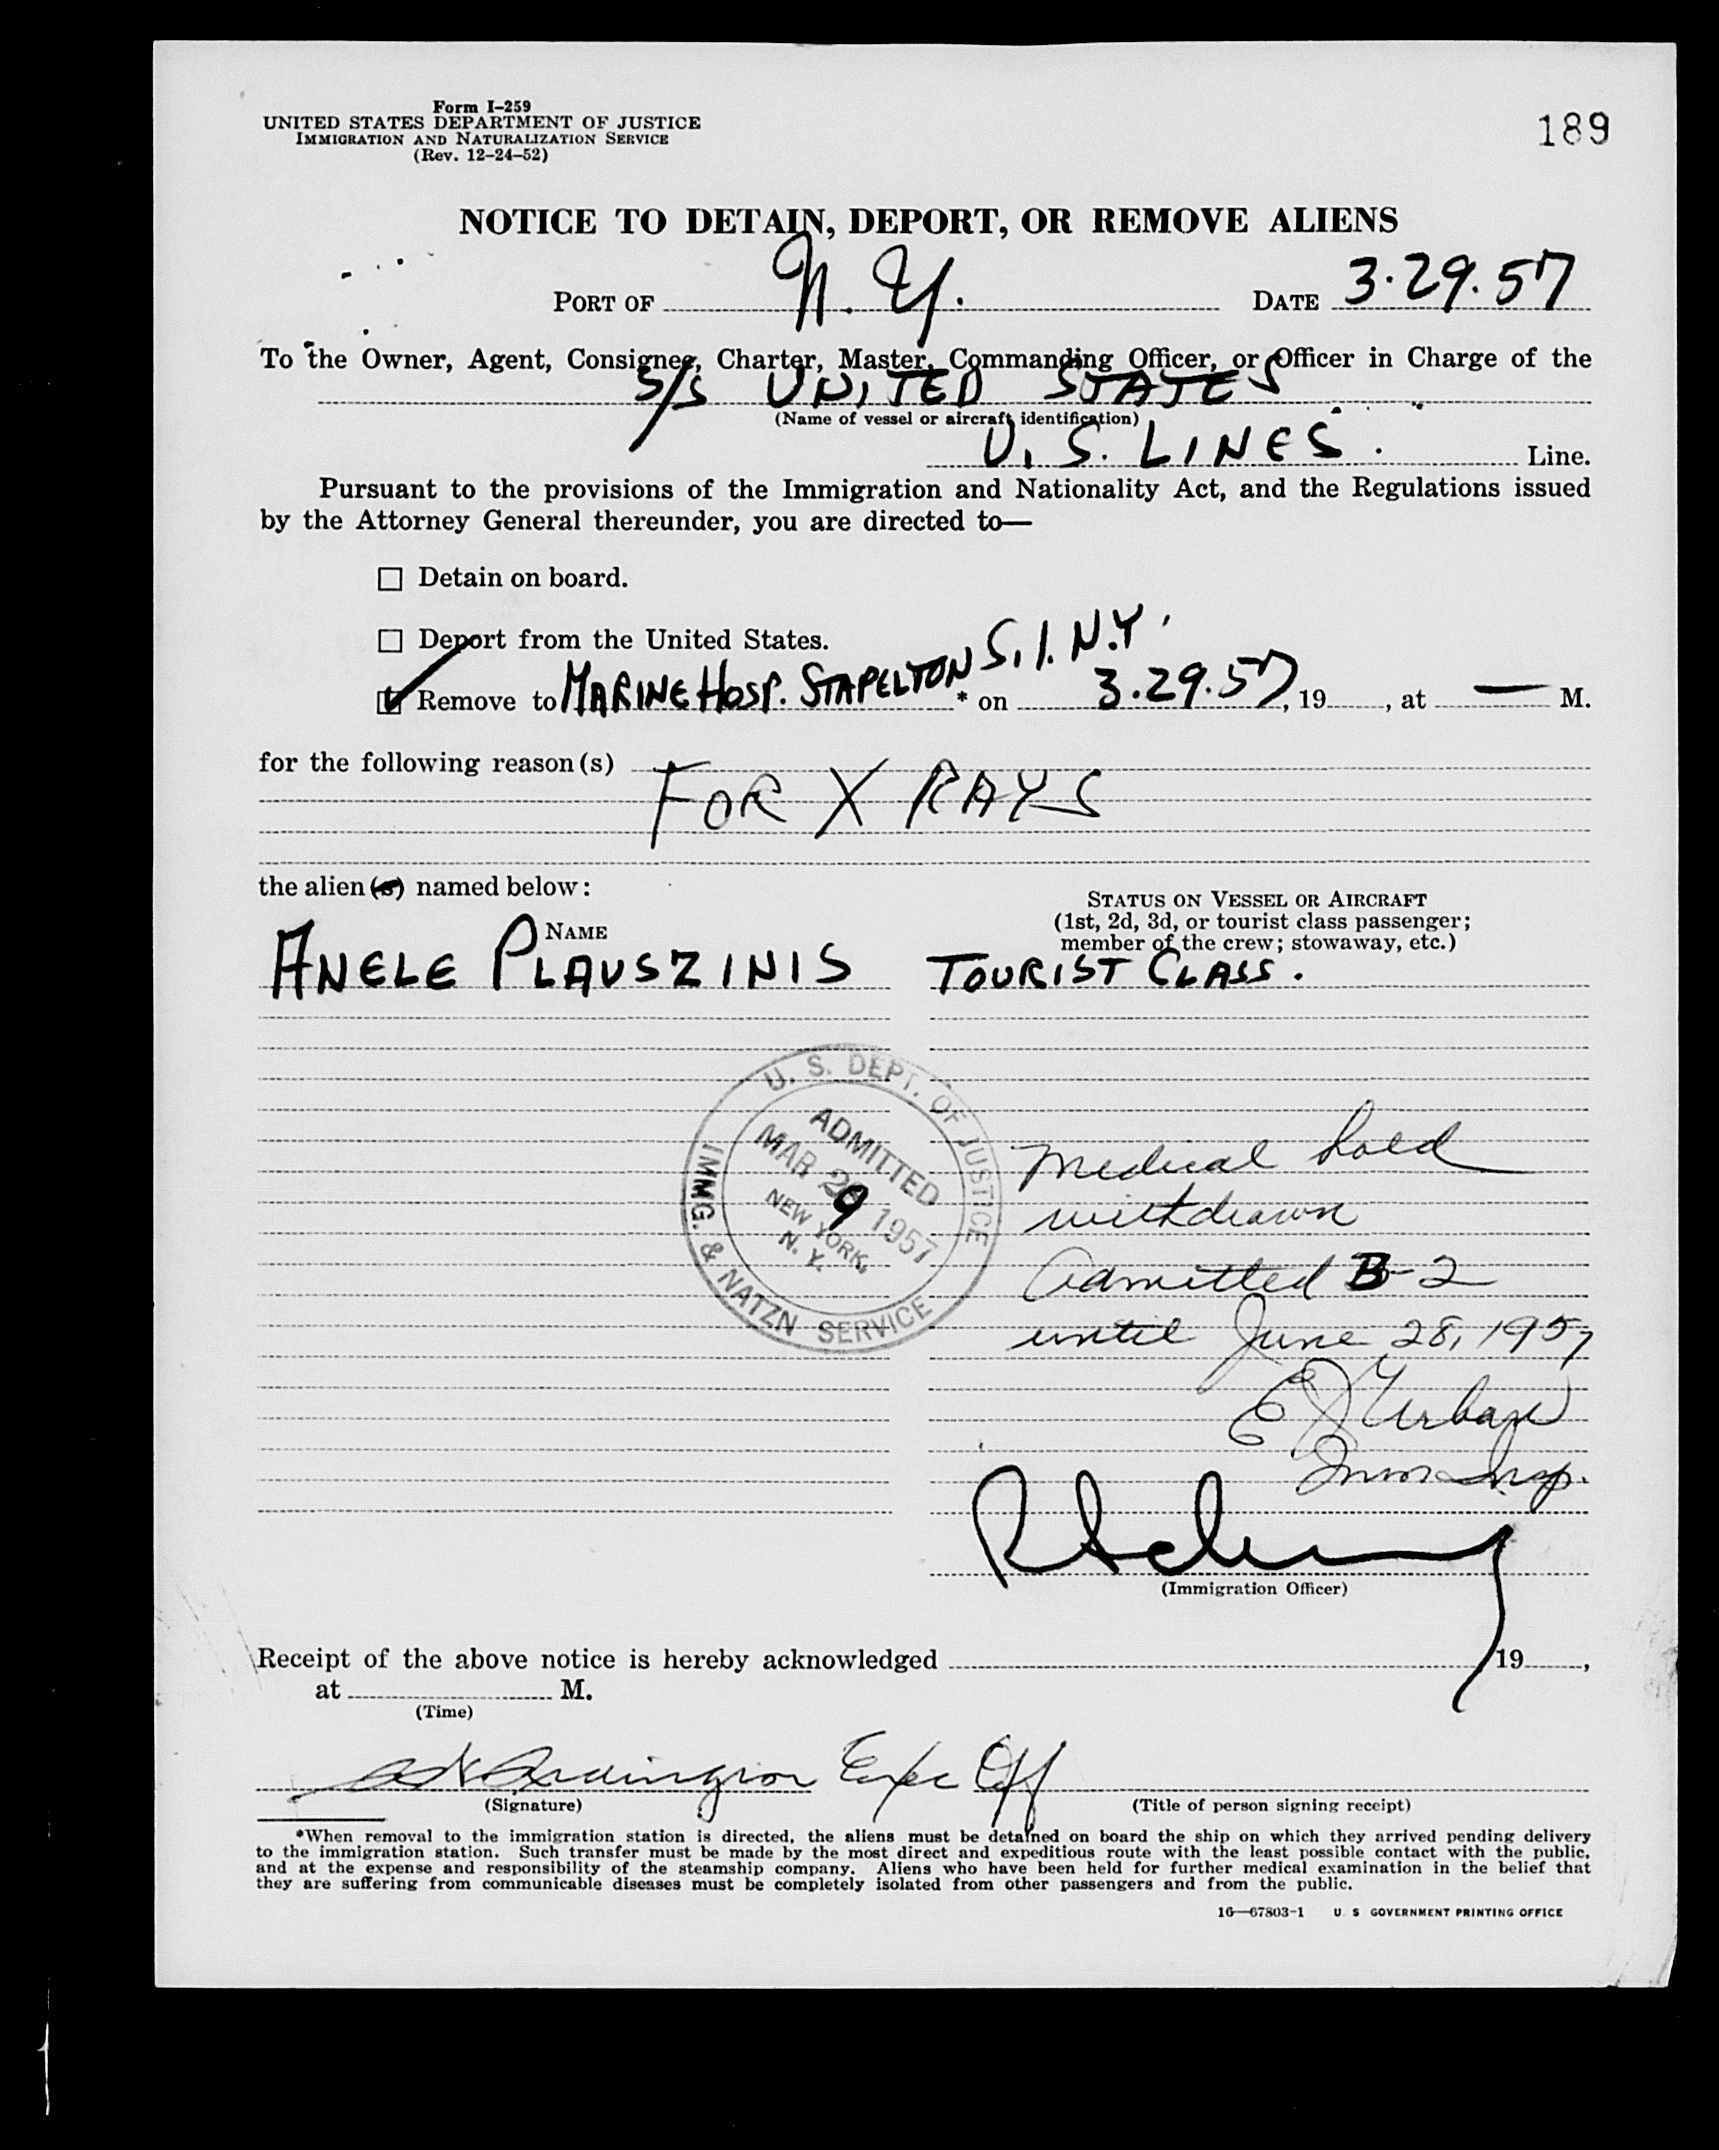 Form I-259
UNITED STATES DEPARTMENT OF JUSTICE
IMMIGRATION AND NATURALIZATION SERVICE
(Rev. 12-24-52)
189
NOTICE TO DETAIN, DEPORT, OR REMOVE ALIENS
PORT OF N. Y. DATE 3.29.57
To the Owner, Agent, Consignee, Charter, Master, Commanding Officer, or Officer in Charge of the
S/S UNITED STATES
(Name of vessel or aircraft identification)
U. S. LINES. Line.
Pursuant to the provisions of the Immigration and Nationality Act, and the Regulations issued
by the Attorney General thereunder, you are directed to—
Detain on board.
Deport from the United States.
Remove to MARINE HOSP. STAPELTON S.I. N.Y. * on 3.29.57, 19 , at — M.
for the following reason(s)
FOR X RAYS
the alien(s) named below:
NAME
STATUS ON VESSEL OR AIRCRAFT
(1st, 2d, 3d, or tourist class passenger;
member of the crew; stowaway, etc.)
ANELE PLAUSZINIS TOURIST CLASS.
U. S. DEPT. OF JUSTICE
IMMG. & NATZN SERVICE
ADMITTED
MAR 29 1957
NEW YORK,
N. Y.
Medical hold
withdrawn
Admitted B-2
until June 28, 1957
Urban
Imm Insp.
(Immigration Officer)
Receipt of the above notice is hereby acknowledged 19 ,
at M.
(Time)
Exec Off
(Signature) (Title of person signing receipt)
*When removal to the immigration station is directed, the aliens must be detained on board the ship on which they arrived pending delivery
to the immigration station. Such transfer must be made by the most direct and expeditious route with the least possible contact with the public,
and at the expense and responsibility of the steamship company. Aliens who have been held for further medical examination in the belief that
they are suffering from communicable diseases must be completely isolated from other passengers and from the public.
16—67803-1 U S GOVERNMENT PRINTING OFFICE